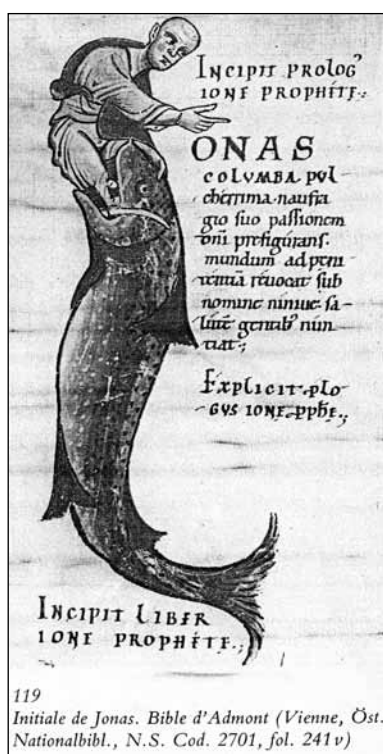 INCIPIT PROLOG⁹
IONE PROPHETE.;
ONAS
COLUMBA pul
cherrima naufra
gio suo passionem
dni prefigurans.
mundum ad peni
tentiā revocat sub
nomine ninive sa-
lutē gentib; nun
tiat.;
EXPLICIT plo-
GVS IONE pphe.;
INCIPIT LIBER
IONE PROPHETE.;
119
Initiale de Jonas. Bible d'Admont (Vienne, Öst.
Nationalbibl., N.S. Cod. 2701, fol. 241v)